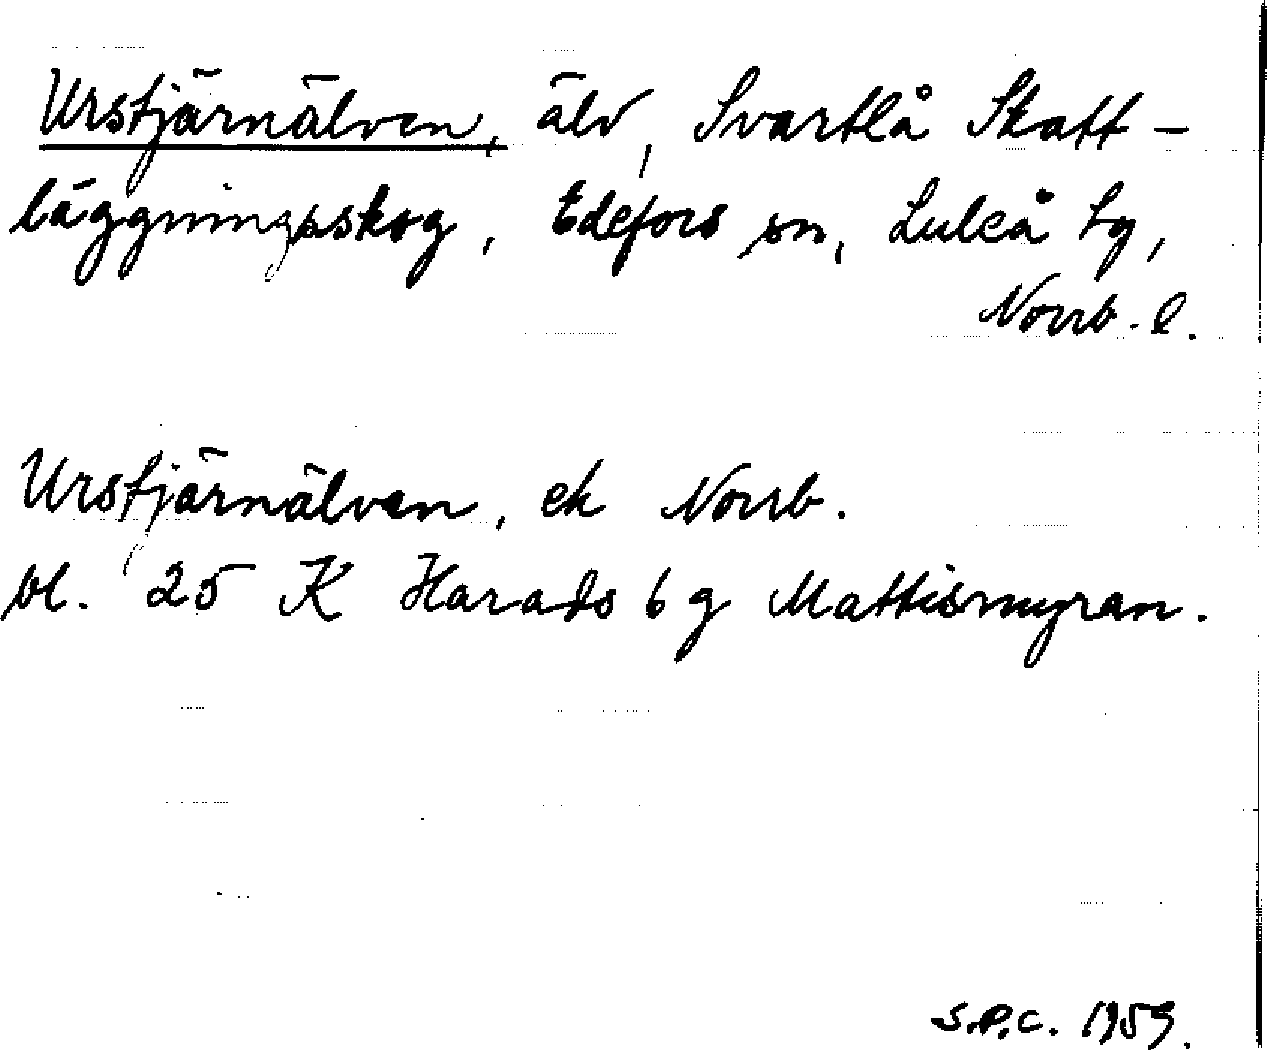 Urstjärnälven, älv, Svartlå Skatt-
läggningsskog, Edefors sn, Luleå tg,
Norrb. l.
Urstjärnälven, ek Norrb.
bl. 25 K Harads 6 g Mattismyran.
S.P.C. 1959.